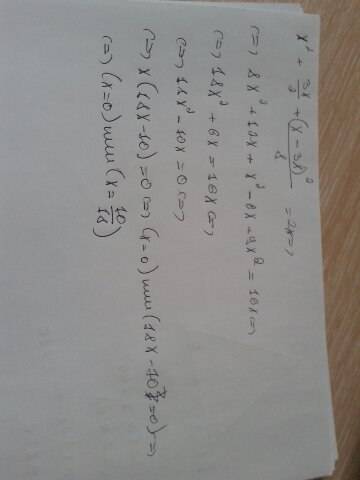 x² + 3x/2 + (x - 3x)²/8 = 2x =>
(=) 8x² + 12x + x² - 6x + 9x² = 16x (=)
(=) 18x² + 6x = 16x (=)
(=) 18x² - 10x = 0 (=)
(=) x(18x - 10) = 0 (=) (x = 0) или (18x - 10 = 0) (=)
(=) (x = 0) или (x = 10/18)